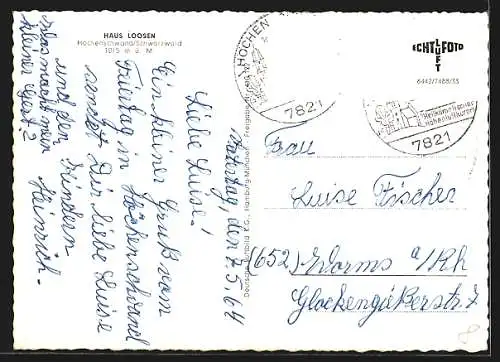 HAUS LOOSEN
Höchenschwand/Schwarzwald
1015 m ü. M
HÖCHEN
7821
ECHT LUFT FOTO
6442/7488/35
Heilklimatischer
Höhenluftkurort
7821
Muttertag, den 7.5.64
Liebe Luise!
Ein kleiner Gruß vom
Feiertag in Höchenschwand
sendet Dir liebe Luise
und den Kindern
Heinrich.
Was macht mein
kleiner Gert?
Deutsche Luftbild K.G., Hamburg München
Frau
Luise Fischer
(652) Worms a/Rh
Glockengießerstr. 7